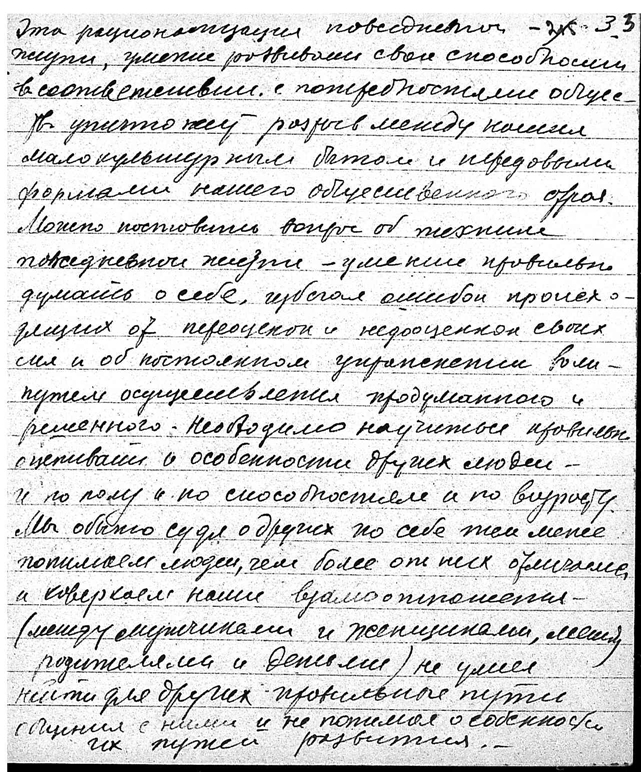 Эта рационализация повседневной - 33
жизни, умение развивать свои способности
в соответствии с потребностями общес-
тв. уничтожит разрыв между нашим
малокультурным бытом и передовыми
формами нашего общественного строя.
Можно поставить вопрос об технике
повседневной жизни - умение правильно
думать о себе, избегая ошибок происхо-
дящих от переоценок и недооценкой своих
сил и об постоянном упражнении воли -
путем осуществления продуманного и
решенного. Необходимо научиться правильно
оценивать и особенности других людей -
и по полу и по способностям и по возрасту
Мы обычно судя о других по себе тем менее
понимаем людей, чем более от них отличаемся
и коверкаем наши взаимоотношения -
(между мужчинами и женщинами, между
родителями и детьми) не умея
найти для других правильные пути
общения с ними и не понимая особенности
их путей развития. -